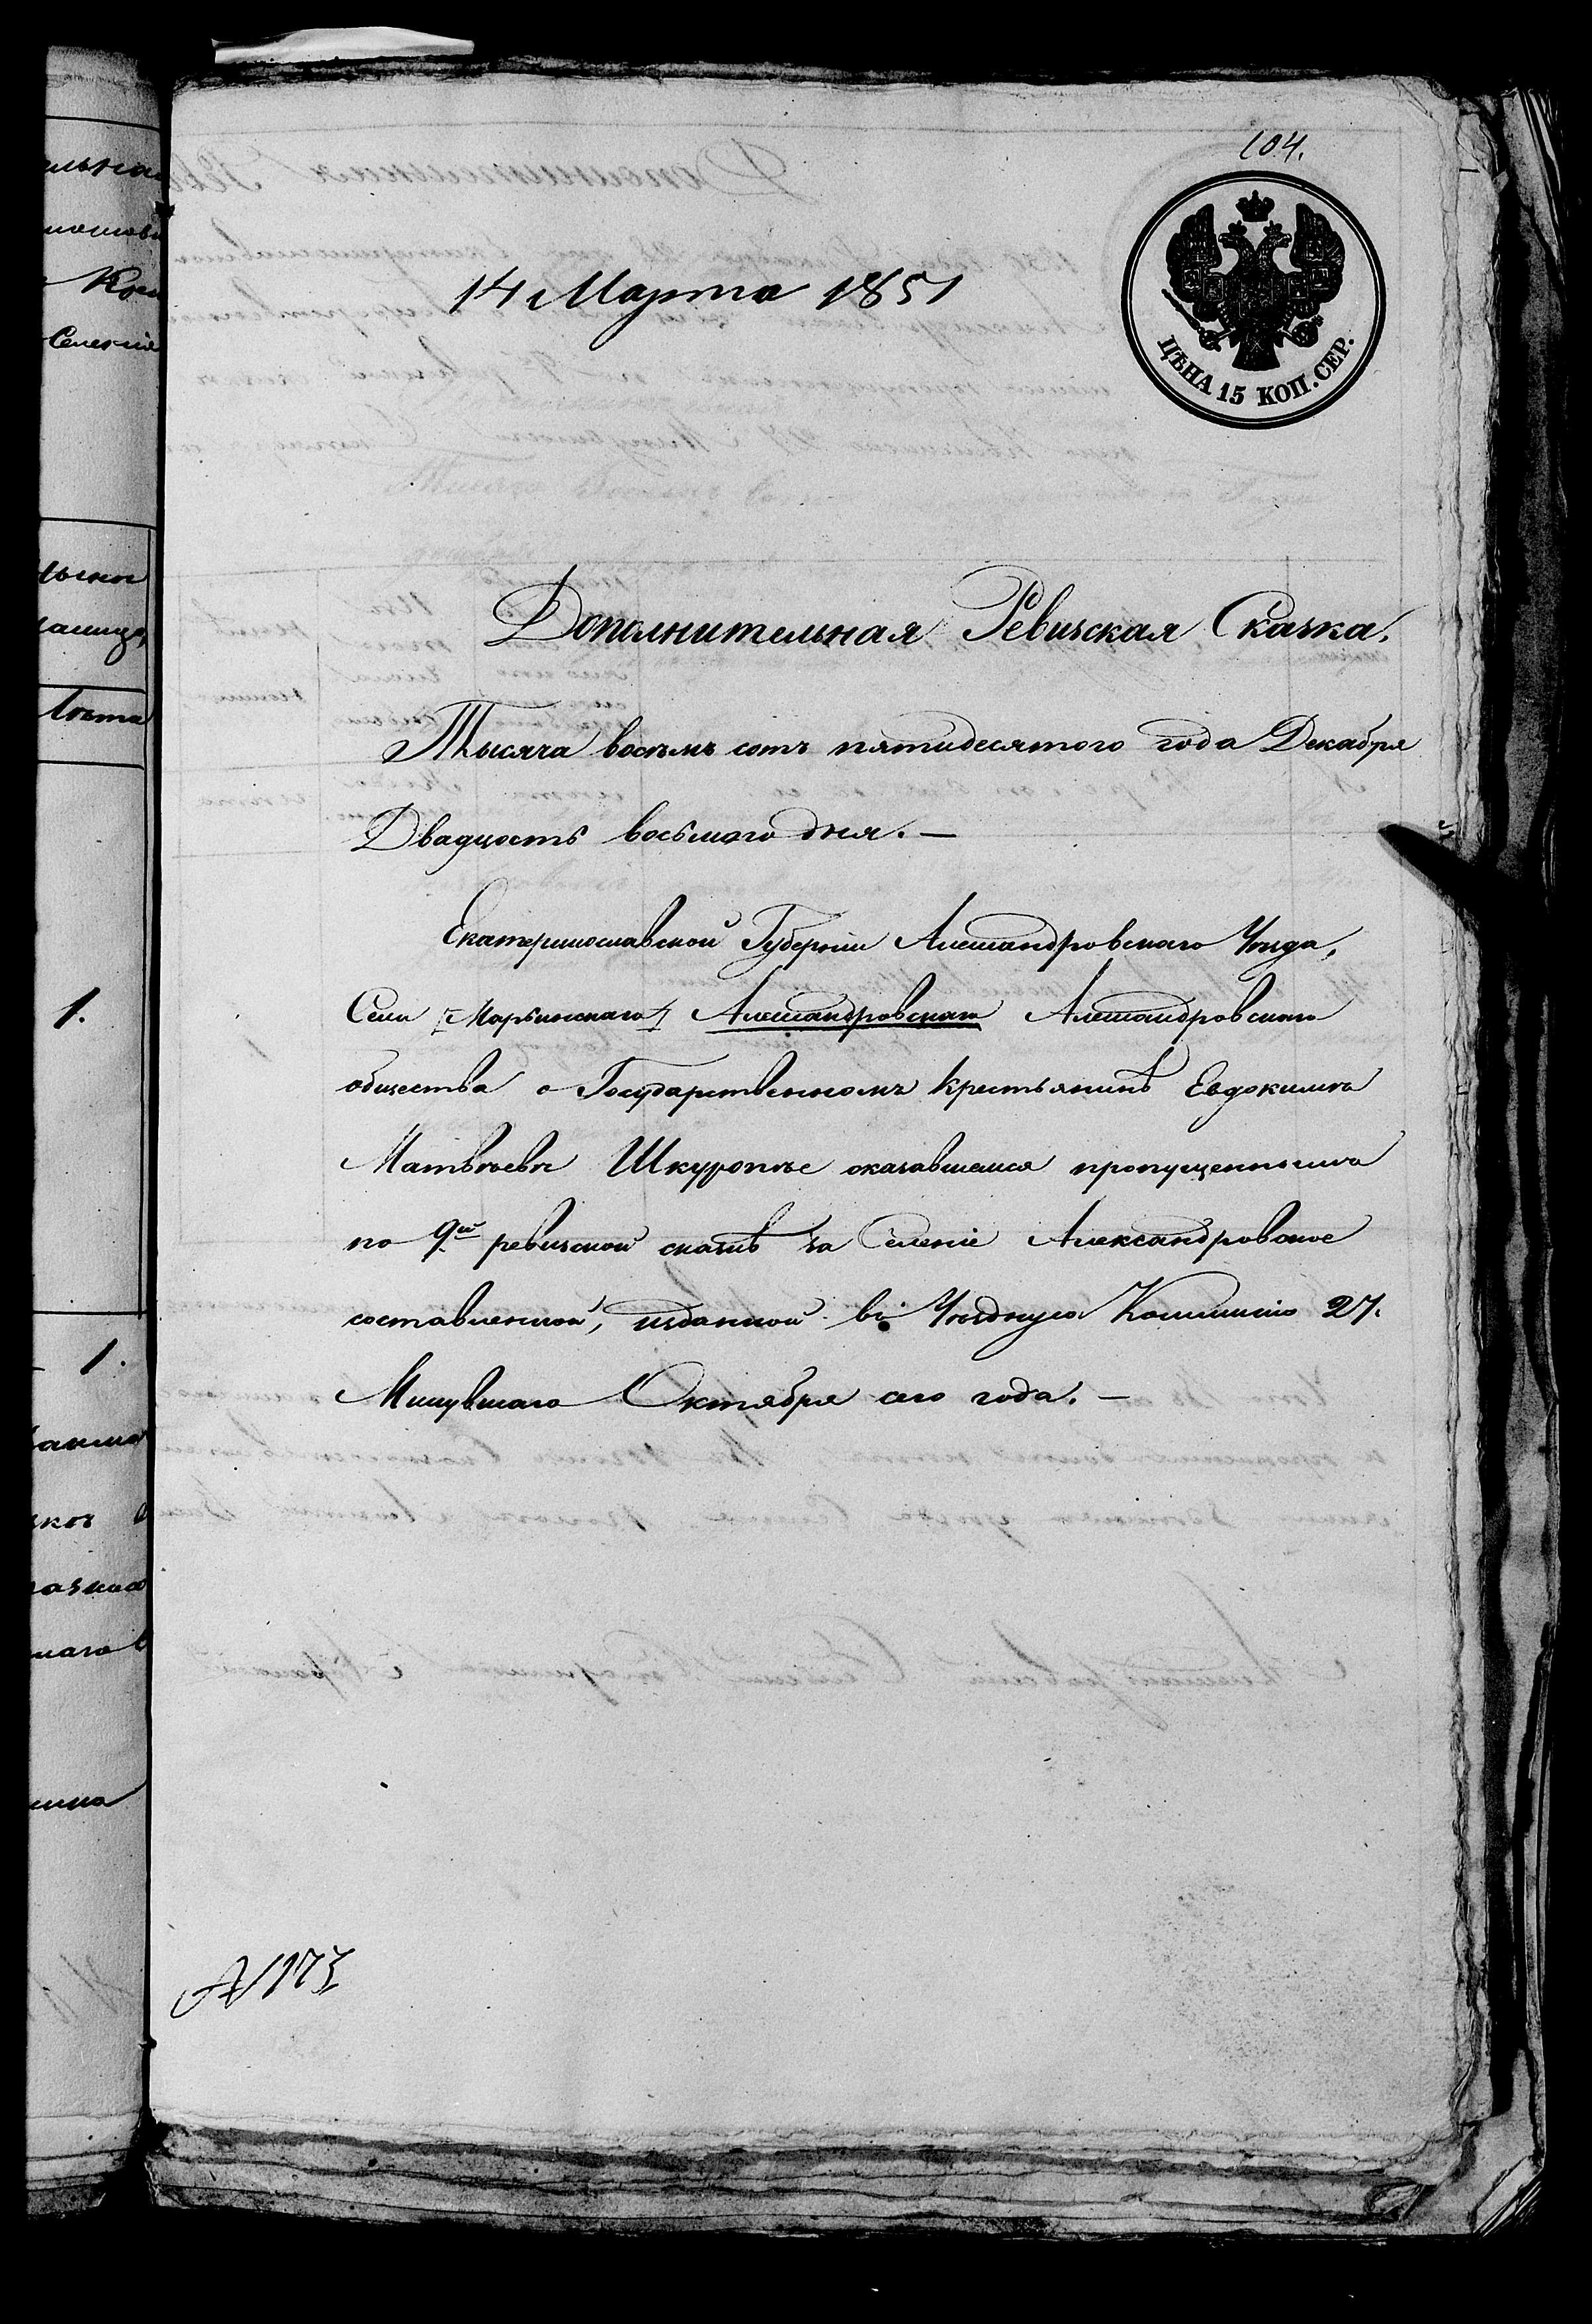 104.
14 Марта 1851
ЦѢНА 15 КОП. СЕР.
Дополнительная Ревизская Сказка.
Тысяча восемь сотъ пятидесятого года Декабря
Двадцать восьмого дня. —
Екатеринославской Губерніи Александровскаго Уѣзда,
Села [Марьинскаго] Александровскаго Александровскаго
общества о Государственномъ крестьянинѣ Евдокимѣ
Матвѣевѣ Шкуропѣе оказавшемся пропущеннымъ
по 9й ревизской сказкѣ за Селеніе Александровское
составленной, изданной въ Уѣздную Коммисію 27.
Минувшаго Октября сего года. —
N 173
1.
1.